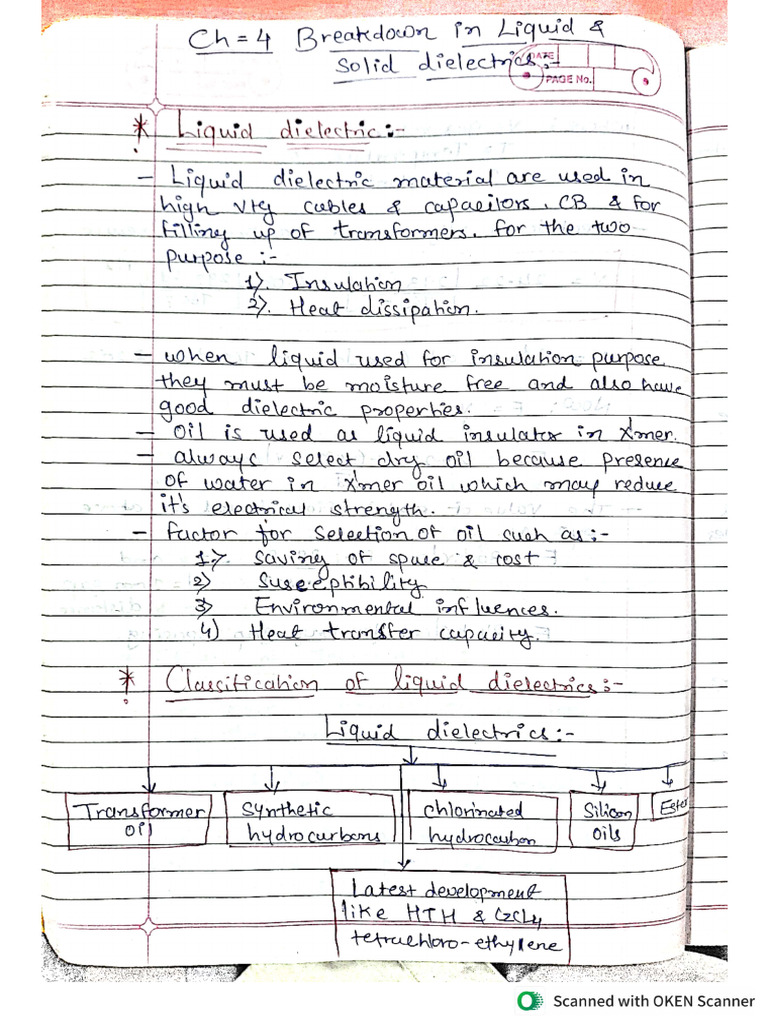 Ch = 4 Breakdown in Liquid &
Solid dielectrics :-
DATE
PAGE No.
* Liquid dielectric :-
- Liquid dielectric material are used in
high Vtg cables & capacitors, CB & for
filling up of transformers. for the two
purpose :-
1). Insulation
2). Heat dissipation.
- when liquid used for insulation purpose
they must be moisture free and also have
good dielectric properties.
- Oil is used as liquid insulator in X'mer.
- always select dry oil because presence
of water in X'mer oil which may reduce
it's electrical strength.
- factor for selection of oil such as :-
1). Saving of space & cost
2) Susceptibility
3) Environmental influences.
4) Heat transfer capacity.
* Classification of liquid dielectrics :-
Liquid dielectrics :-
Transformer oil
Synthetic hydrocarbons
chlorinated hydrocarbon
Silicon oils
Ester
Latest development
like HTH & C2Cl4
tetrachloro-ethylene
Scanned with OKEN Scanner